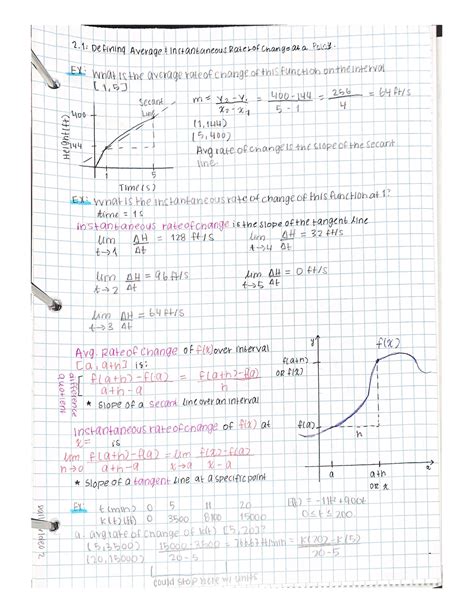 2.1: Defining Average & Instantaneous Rates of Change at a Point.
EX: What is the average rate of change of this function on the interval
[1,5]
Height (ft)
400
144
1
5
Time (s)
Secant
line
m = y₂-y₁/x₂-x₁ = 400-144/5-1 = 256/4 = 64 ft/s
(1,144)
(5,400)
Avg rate of change is the slope of the secant
line.
EX: What is the instantaneous rate of change of this function at 1?
time = 1s
instantaneous rate of change is the slope of the tangent line
lim t→1 ΔH/Δt = 128 ft/s
lim t→4 ΔH/Δt = 32 ft/s
lim t→2 ΔH/Δt = 96 ft/s
lim t→5 ΔH/Δt = 0 ft/s
lim t→3 ΔH/Δt = 64 ft/s
Avg. Rate of change of f(x) over interval
[a, a+h] is:
difference
quotient
f(a+h)-f(a)/a+h-a = f(a+h)-f(a)/h
* slope of a secant line over an interval
Instantaneous rate of change of f(x) at
x= is
lim h→0 f(a+h)-f(a)/a+h-a = lim x→a f(x)-f(a)/x-a
* slope of a tangent line at a specific point
y
f(x)
f(a+h)
OR f(x)
f(a)
h
a
a+h
OR x
x
EX: t(min) 0 5 11 20
0 ≤ t ≤ 200
a. avg rate of change of k(t) [5,20]?
(5,3500)
(20,15000)
15000-3500/20-5
= k(20)-k(5)/20-5
could stop here w/ units